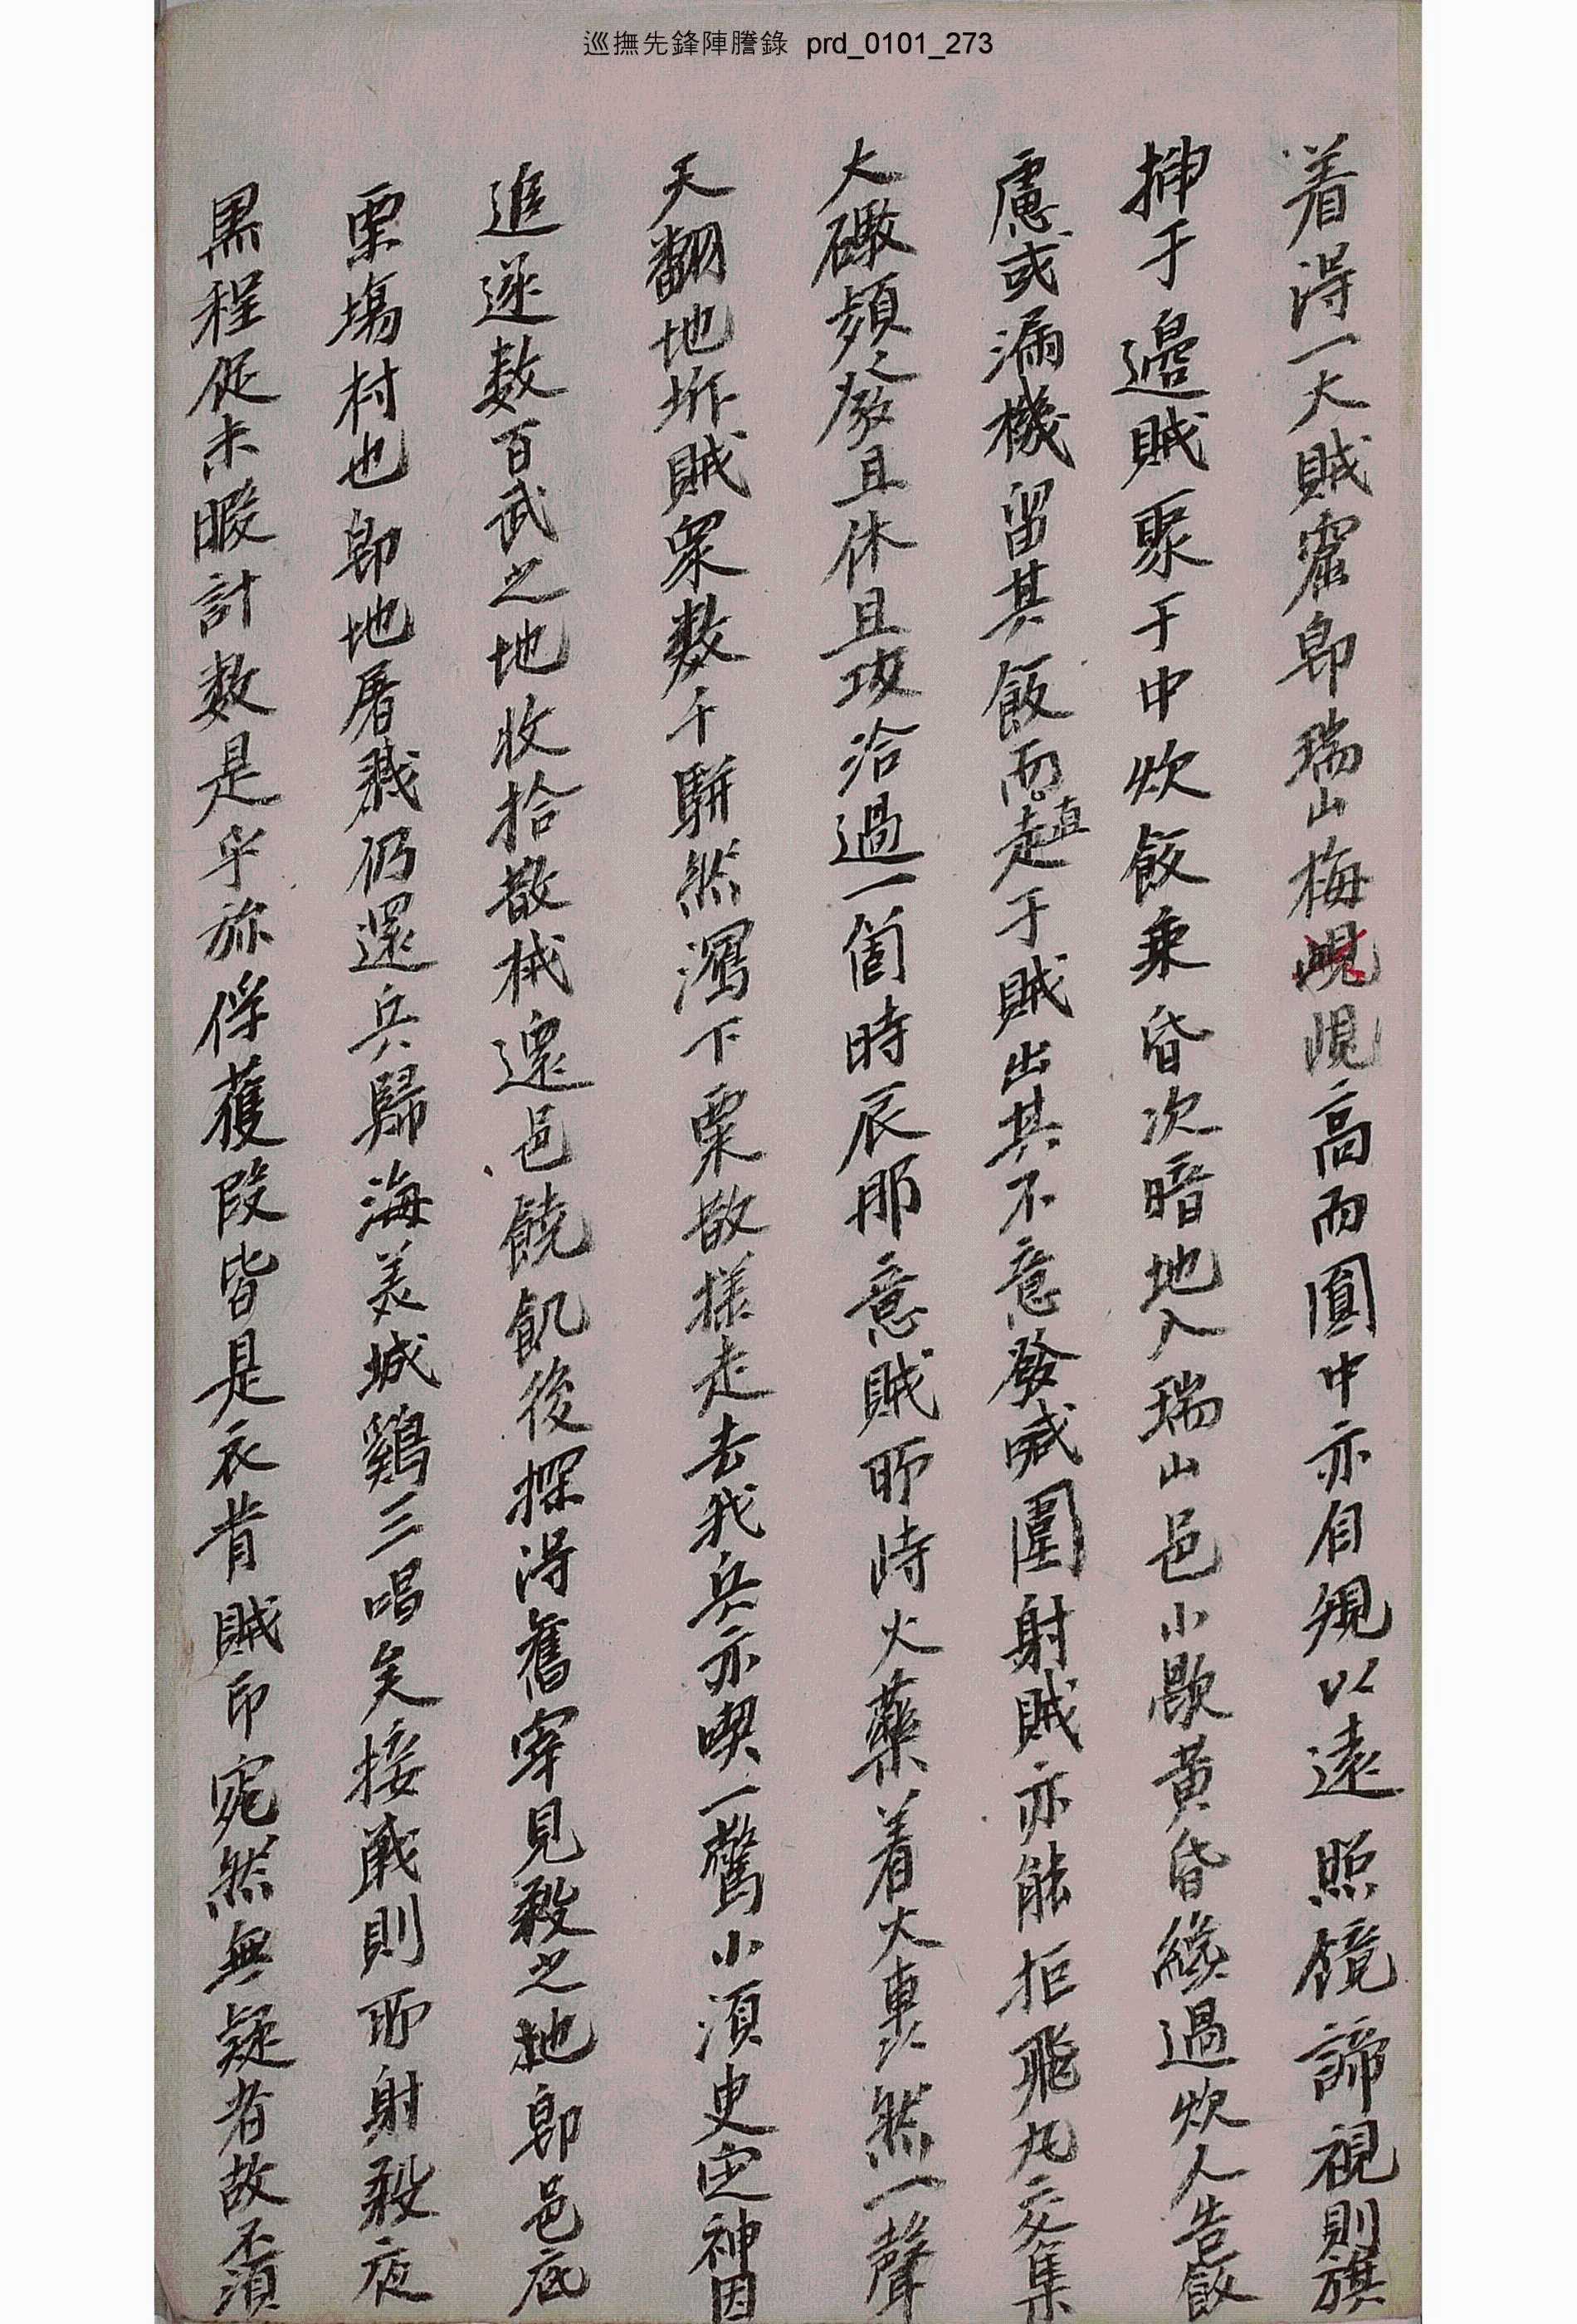 巡撫先鋒陣謄錄 prd_0101_273
着淂一大賊窟卽瑞山梅峴峴高而圓中亦自䂓以遠照鏡諦視則旗
揷于邊賊聚于中炊飯乘昏次暗地入瑞山邑小歇黃昏纔過炊人告飯
慮或漏機留其飯而直趍于賊出其不意發喊圍射賊亦能拒飛丸交集
大礮頻之發且休且攻洽過一箇時辰那意賊所峙火藥着大轟然一聲
天翻地坼賊衆數千騈然瀉下粟散樣走去我兵亦喫一驚小須臾定神因
追逐數百武之地收拾散械還邑饒飢後探淂舊宰見殺之地卽邑底
栗塲村也卽地屠戮仍還兵歸海美城鷄三唱矣接戰則所射殺夜
黑程促未暇計數是乎旀俘獲段皆是衣背賊印宛然無疑者故不湏